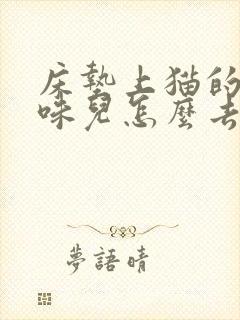 床墊上猫的
味兒怎麼去
夢語晴